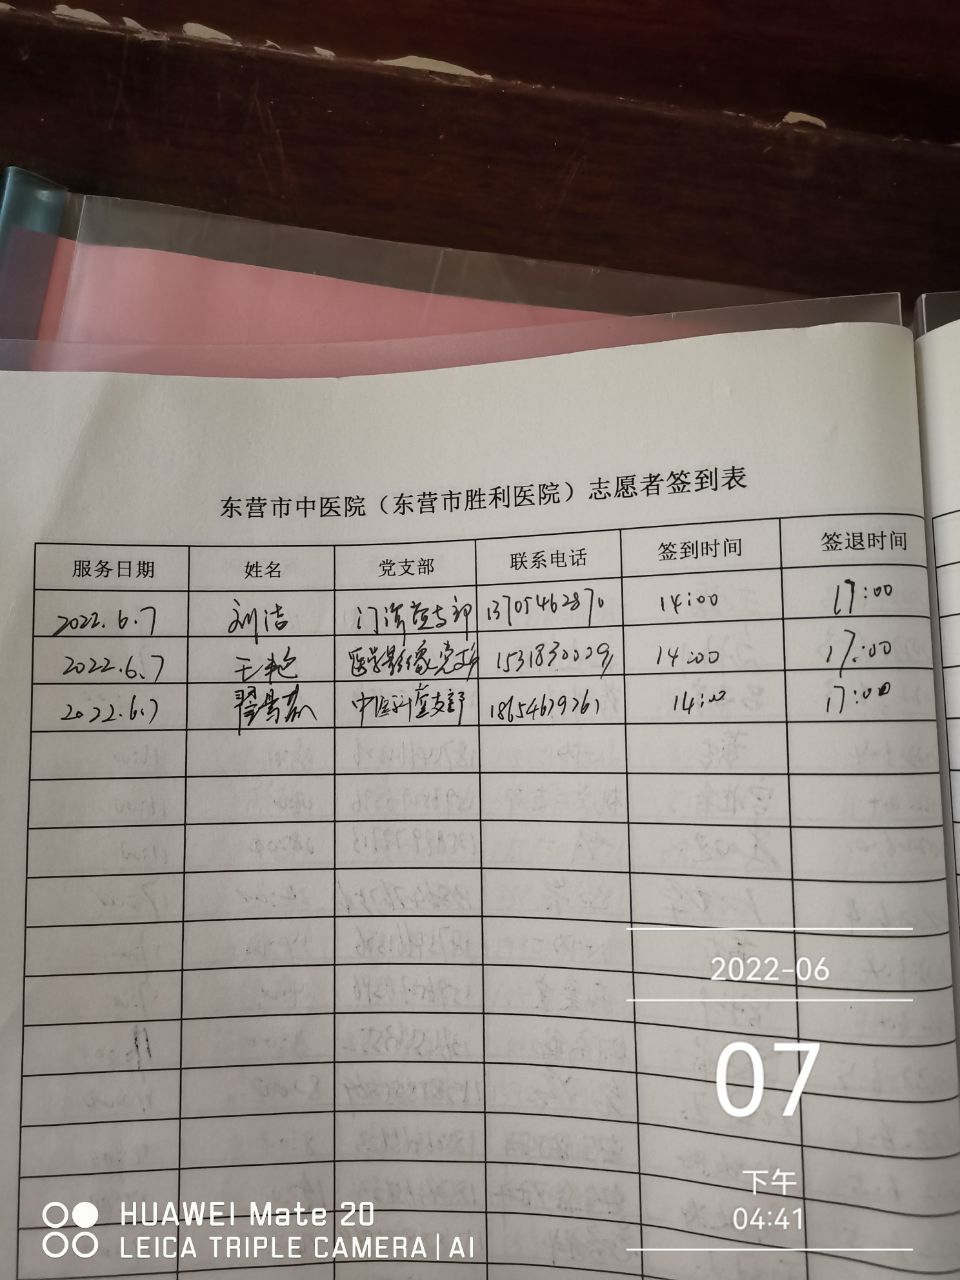 东营市中医院（东营市胜利医院）志愿者签到表
服务日期 姓名 党支部 联系电话 签到时间 签退时间
2022.6.7 刘洁 门诊党支部 13705462870 14:00 17:00
2022.6.7 王艳 医学影像党支部 15318300291 14:00 17:00
2022.6.7 中医科党支部 18654679261 14:00 17:00
2022-06
07
下午
04:41
HUAWEI Mate 20
LEICA TRIPLE CAMERA | AI